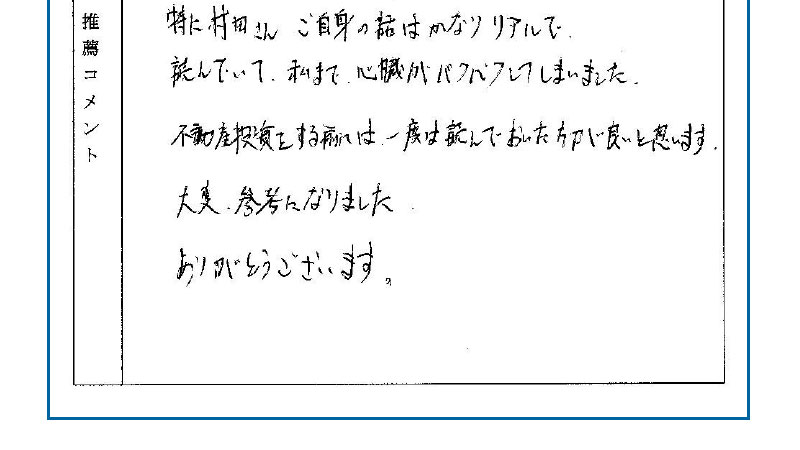 推薦コメント
特に村田さん ご自身の話はかなりリアルで、
読んでいて、私まで、心臓がバクバクしてしまいました。
不動産投資をする前には、一度は読んでおいた方が良いと思います。
大変、参考になりました。
ありがとうございます。